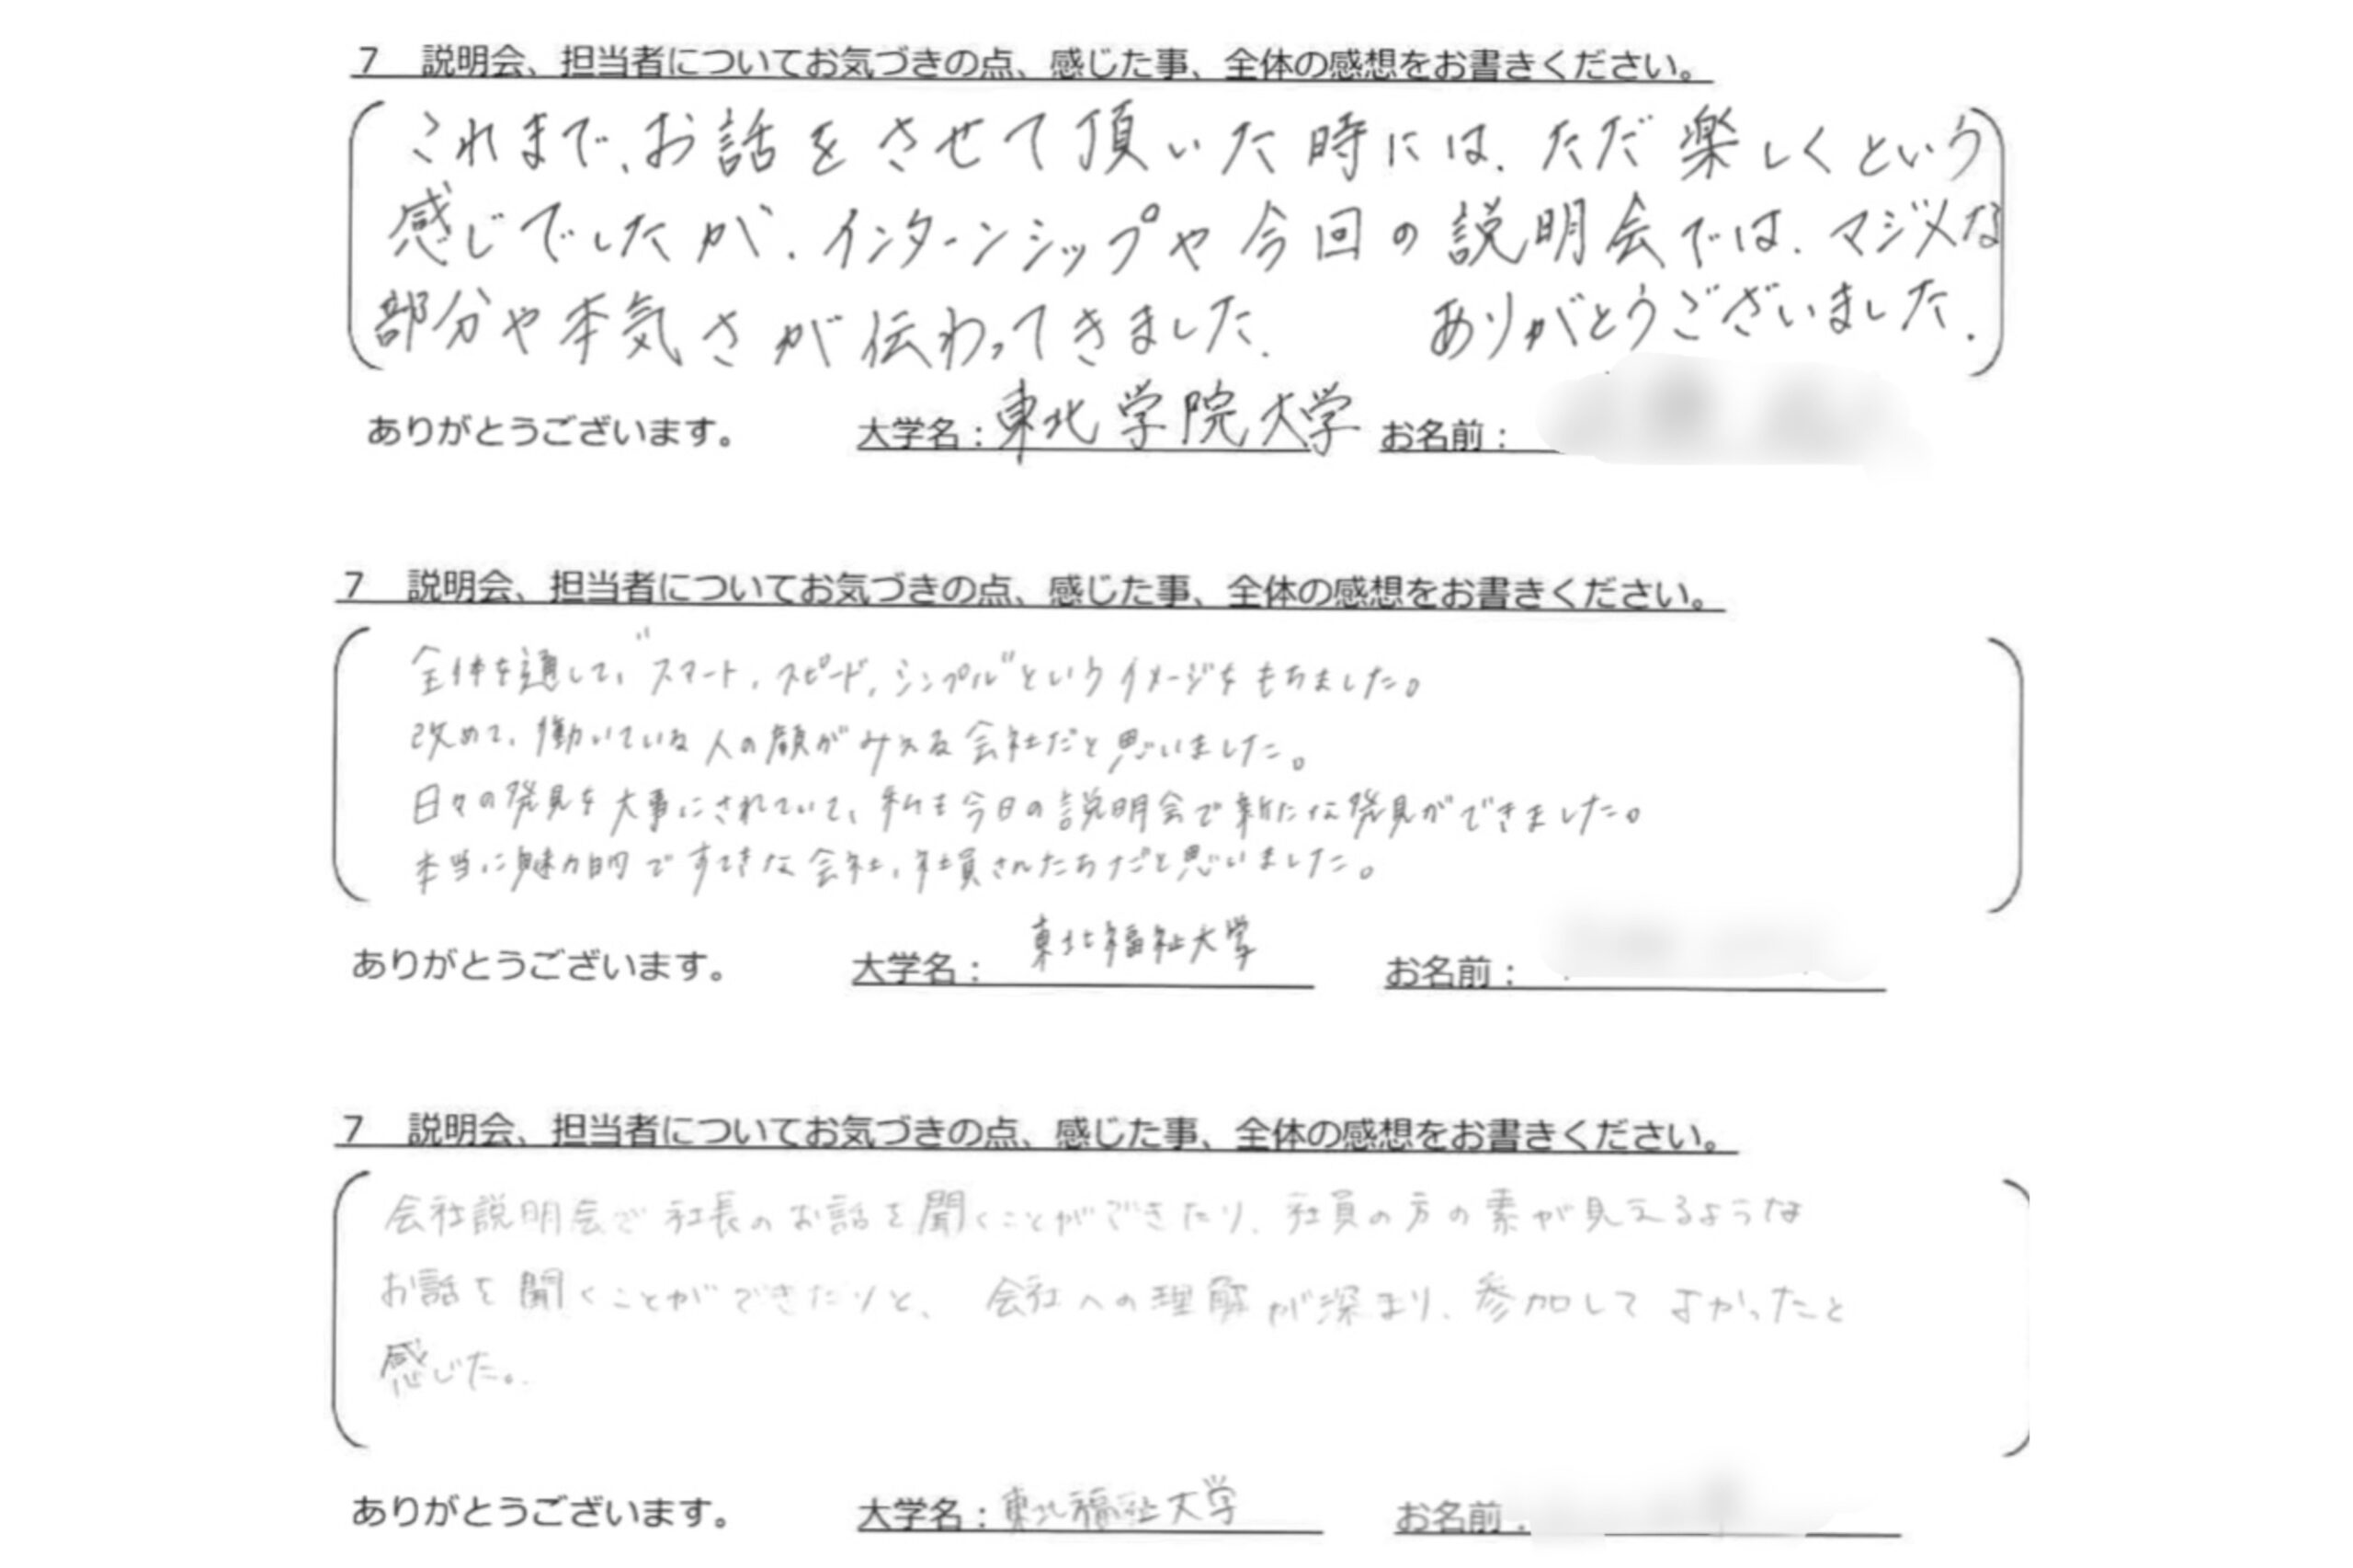 7 説明会、担当者についてお気づきの点、感じた事、全体の感想をお書きください。
これまで、お話をさせて頂いた時には、ただ楽しくという
感じでしたが、インターンシップや今回の説明会では、マジメな
部分や本気さが伝わってきました。 ありがとうございました。
ありがとうございます。 大学名：東北学院大学 お名前：
7 説明会、担当者についてお気づきの点、感じた事、全体の感想をお書きください。
全体を通して、"スマート、スピード、シンプル"というイメージをもちました。
改めて、働いている人の顔がみえる会社だと思いました。
日々の発見を大事にされていて、私も今日の説明会で新たな発見ができました。
本当に魅力的ですてきな会社、社員さんたちだと思いました。
ありがとうございます。 大学名： 東北福祉大学 お名前：
7 説明会、担当者についてお気づきの点、感じた事、全体の感想をお書きください。
会社説明会で社長のお話を聞くことができたり、社員の方の素が見えるような
お話を聞くことができたりと、会社への理解が深まり、参加してよかったと
感じた。
ありがとうございます。 大学名：東北福祉大学 お名前：